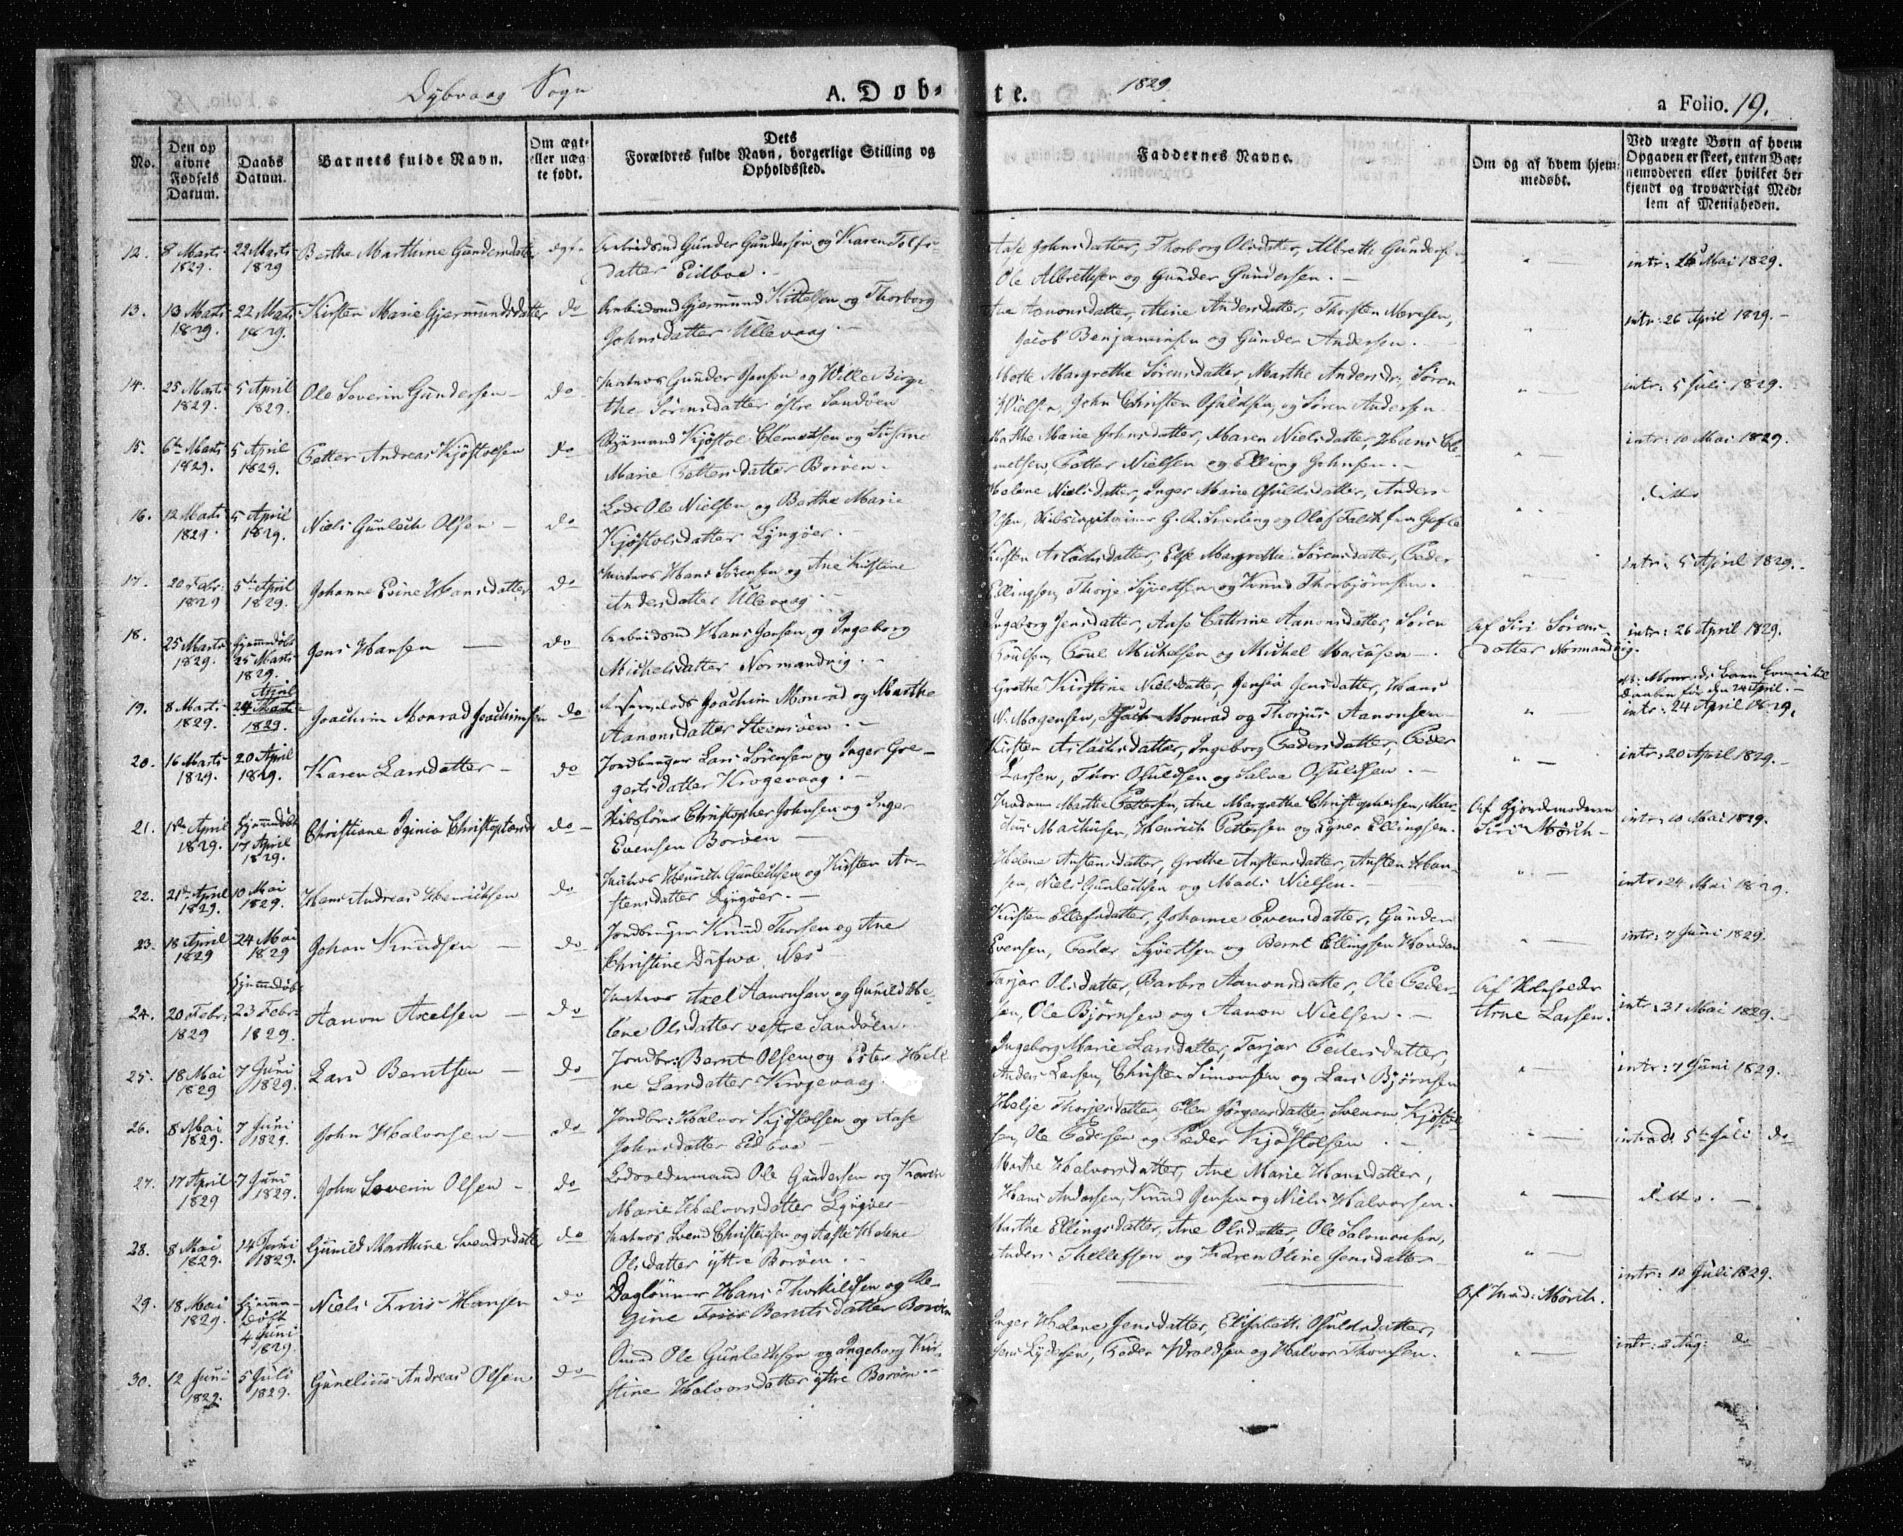 Dybvaag Sogn
A. Døb-
te.
1829
a Folio. 19.
No.
Den op
givne
Fødsels
Datum.
Daabs
Datum.
Barnets fulde Navn.
Om ægte
eller uæg
te født.
Dets
Forældres fulde Navn, borgerlige Stilling og
Opholdssted.
Faddernes Navne.
Om og af hvem hjem-
medøbt.
Ved uægte Børn af hvem
Opgaven er skeet, enten Bar-
nemoderen eller hvilket be-
kjendt og troværdigt Med-
lem af Menigheden.
12. 8 Marts 22 Marts Berthe Marthine Gundersdatter Arbeidsmd Gunder Gundersen og Karen Tolfs-
1829. 1829 datter Eidboe.
Aase Johnsdatter, Thorborg Olsdatter, Albreth Gundersen
Ole Albrethsen og Gunder Gundersen.
intr: 26 Mai 1829.
13. 13 Marts 22 Marts Kirsten Marie Gjermundsdatter do Arbeidsmd Gjermund Kittelsen og Thorborg
1829. 1829. Johnsdatter Ullevaag.
Ane Aanonsdatter, Aline Andersdatter, Thorsten
Jacob Benjaminsen og Gunder Andersen.
intr: 26 April 1829.
14. 25 Marts 5 April Ole Severin Gundersen do Matros Gunder Jensen og Wille Birgi-
1829. 1829. the Sørensdatter østre Sandøen
Mette Margrethe Sørensdatter, Marthe Andersdr, Søren
Nielsen, John Christen Osuldsen, og Søren Andersen
intr: 5 Juli 1829.
15. 6te Marts 5 April Petter Andreas Kjøstolsen do Styrmand Kjøstol Clemetsen og Susane
1829. 1829. Marie Pettersdatter Borøen.
Marthe Marie Johnsdatter, Maren Nielsdatter, Hans Cle-
metsen, Petter Nielsen og Elling Johnsen.
intr: 10 Mai 1829.
16. 12 Marts 5 April Niels Gunleik Olsen do Lods Ole Nielsen og Berthe Marie
1829. 1829. Kjøstolsdatter Lyngøer.
Helene Nielsdatter, Inger Marie Osuldsdatter, Anders
Olsen, Skibscapitainer G. R. og Olaf Falck fra Gefle
ditto
17. 20 Febr: 5te April Johanne Evine Hansdatter do Matros Hans Sørensen og Ane Kirstine
1829 1829. Andersdatter Ullevaag.
Kirsten Aslachsdatter, Else Margrethe Sørensdatter, Peder
Ellingsen, Thorje Syvertsen og Knud Thorbjørnsen.
intr: 5 April 1829.
18. 25 Marts Hjemmedøbt Jens Hansen do Arbeidsmd Hans Jensen og Ingeborg
1829. 25 Marts Michelsdatter Normandvig.
1829.
Ingeborg Jensdatter, Aase Cathrine Aanonsdatter, Søren
Poulsen, Poul Michelsen og Michel
Af Siri Sørens-
datter Normandvig.
intr: 26 April 1829.
19. 8 Marts April Joachim Monrad Joachimsen do Joachim Monrad og Marthe
1829. 24 Marts Aanonsdatter Steensøen
1829.
Grethe Kirstine Nielsdatter, Jensia Jensdatter, Hans
N. Mogensen, Monrad og Thorjus Aanonsen
NB. Monrads Barn kom ei til
Daaben før den 24 April.
intr: 24 April 1829.
20. 16 Marts 20 April Karen Larsdatter do Jordbruger Lars Sørensen og Inger Gre-
1829. 1829. gertsdatter Krogevaag.
Kirsten Aslachsdatter, Ingeborg Pedersdatter, Peder
Larsen, Thor Osuldsen og Salve Osuldsen.
intr: 20 April 1829.
21. 1ste April Hjemmedøbt Christiane Iginia Christophersd do Skibsfører Christopher Johnsen og Inger
1829. 17 April Evensen Borøen
1829.
Madam Marthe Pettersen, Ane Margrethe Christophersen, Mar-
thus Mathisen, Henrich Pettersen og Egner Ellingsen.
Af Gjordemoderen
Siri Mørch
intr: 10 Mai 1829.
22. 21de April 10 Mai Hans Andreas Henrichsen do Matros Henrich Gunleiksen og Kirsten An-
1829. 1829. stensdatter Lyngøer.
Helene Anstensdatter, Grethe Anstensdatter, Ansten Han-
sen, Niels Gunleiksen og Mads Nielsen.
intr: 24 Mai 1829.
23. 18 April 24 Mai Johan Knudsen do Jordbruger Knud Thorsen og Ane
1829 1829 Christine Næs
Kirsten Ellefsdatter, Johanne Evensdatter, Gunder
Evensen, Peder Syvertsen og Bernt Ellingsen
intr: 7 Juni 1829.
24. 20 Febr: Hjemmedøbt Aanon Axelsen do Matros Axel Aanonsen og Gunild He-
1829 23 Febr: lene Olsdatter vestre Sandøen
1829.
Tarjer Olsdatter, Barbro Aanonsdatter, Ole Peder-
sen, Ole Bjørnsen og Aanon Nielsen.
Arne Larsen.
intr: 31 Mai 1829.
25. 18 Mai 7 Juni Lars Berntsen do Jordbr: Bernt Olsen og Ester Hele-
1829 1829. ne Larsdatter Krogevaag
Ingeborg Marie Larsdatter, Tarjer Pedersdatter,
Anders Larsen, Christen Simonsen og Lars Bjørnsen
intr: 7 Juni 1829.
26. 8 Mai 7 Juni John Halvorsen do Jordbr: Halvor Kjøstolsen og Aase
1829. 1829. Johnsdatter Eidboe
Helje Thorjersdatter, Elen Jørgensdatter, Kjøstol-
sen, Ole Pedersen og Peder Kjøstolsen.
5te Juli do
27. 17 April 7 Juni John Severin Olsen do Lodsoldermand Ole Gundersen og Karen
1829 1829. Marie Halvorsdatter Lyngøer
Marthe Halvorsdatter, Ane Marie Hansdatter,
Hans Andersen, Knud Jensen og Niels Halvorsen.
ditto.
28. 8 Mai 14 Juni Gunild Marthine Svendsdatter do Matros Svend Christensen og Aaste Helene
1829. 1829. Olsdatter ytre Borøen.
Marthe Ellingsdatter, Ane Olsdatter, Ole Salomonsen,
Anders Thellefsen og Karen Oline Jensdatter
29. 18 Mai Hjemme- Niels Friis Hansen do Daglønner Hans Thorkildsen og Re-
1829. døbt gine Friis Berntsdatter Borøen
4 Juni
1829.
Af Mad: Mørch.
intr: 10 Juli 1829.
30. 12 Juni 5 Juli Gunelius Andreas Olsen do Ole Gunleiksen og Ingeborg Kir-
1829. 1829. stine Halvorsdatter ytre Borøen
Inger Helene Jensdatter, Elisabeth Osuldsdatter,
Jens Lydersen, Peder Wroldsen og Halvor Thorsen.
intr: 2 Aug: do